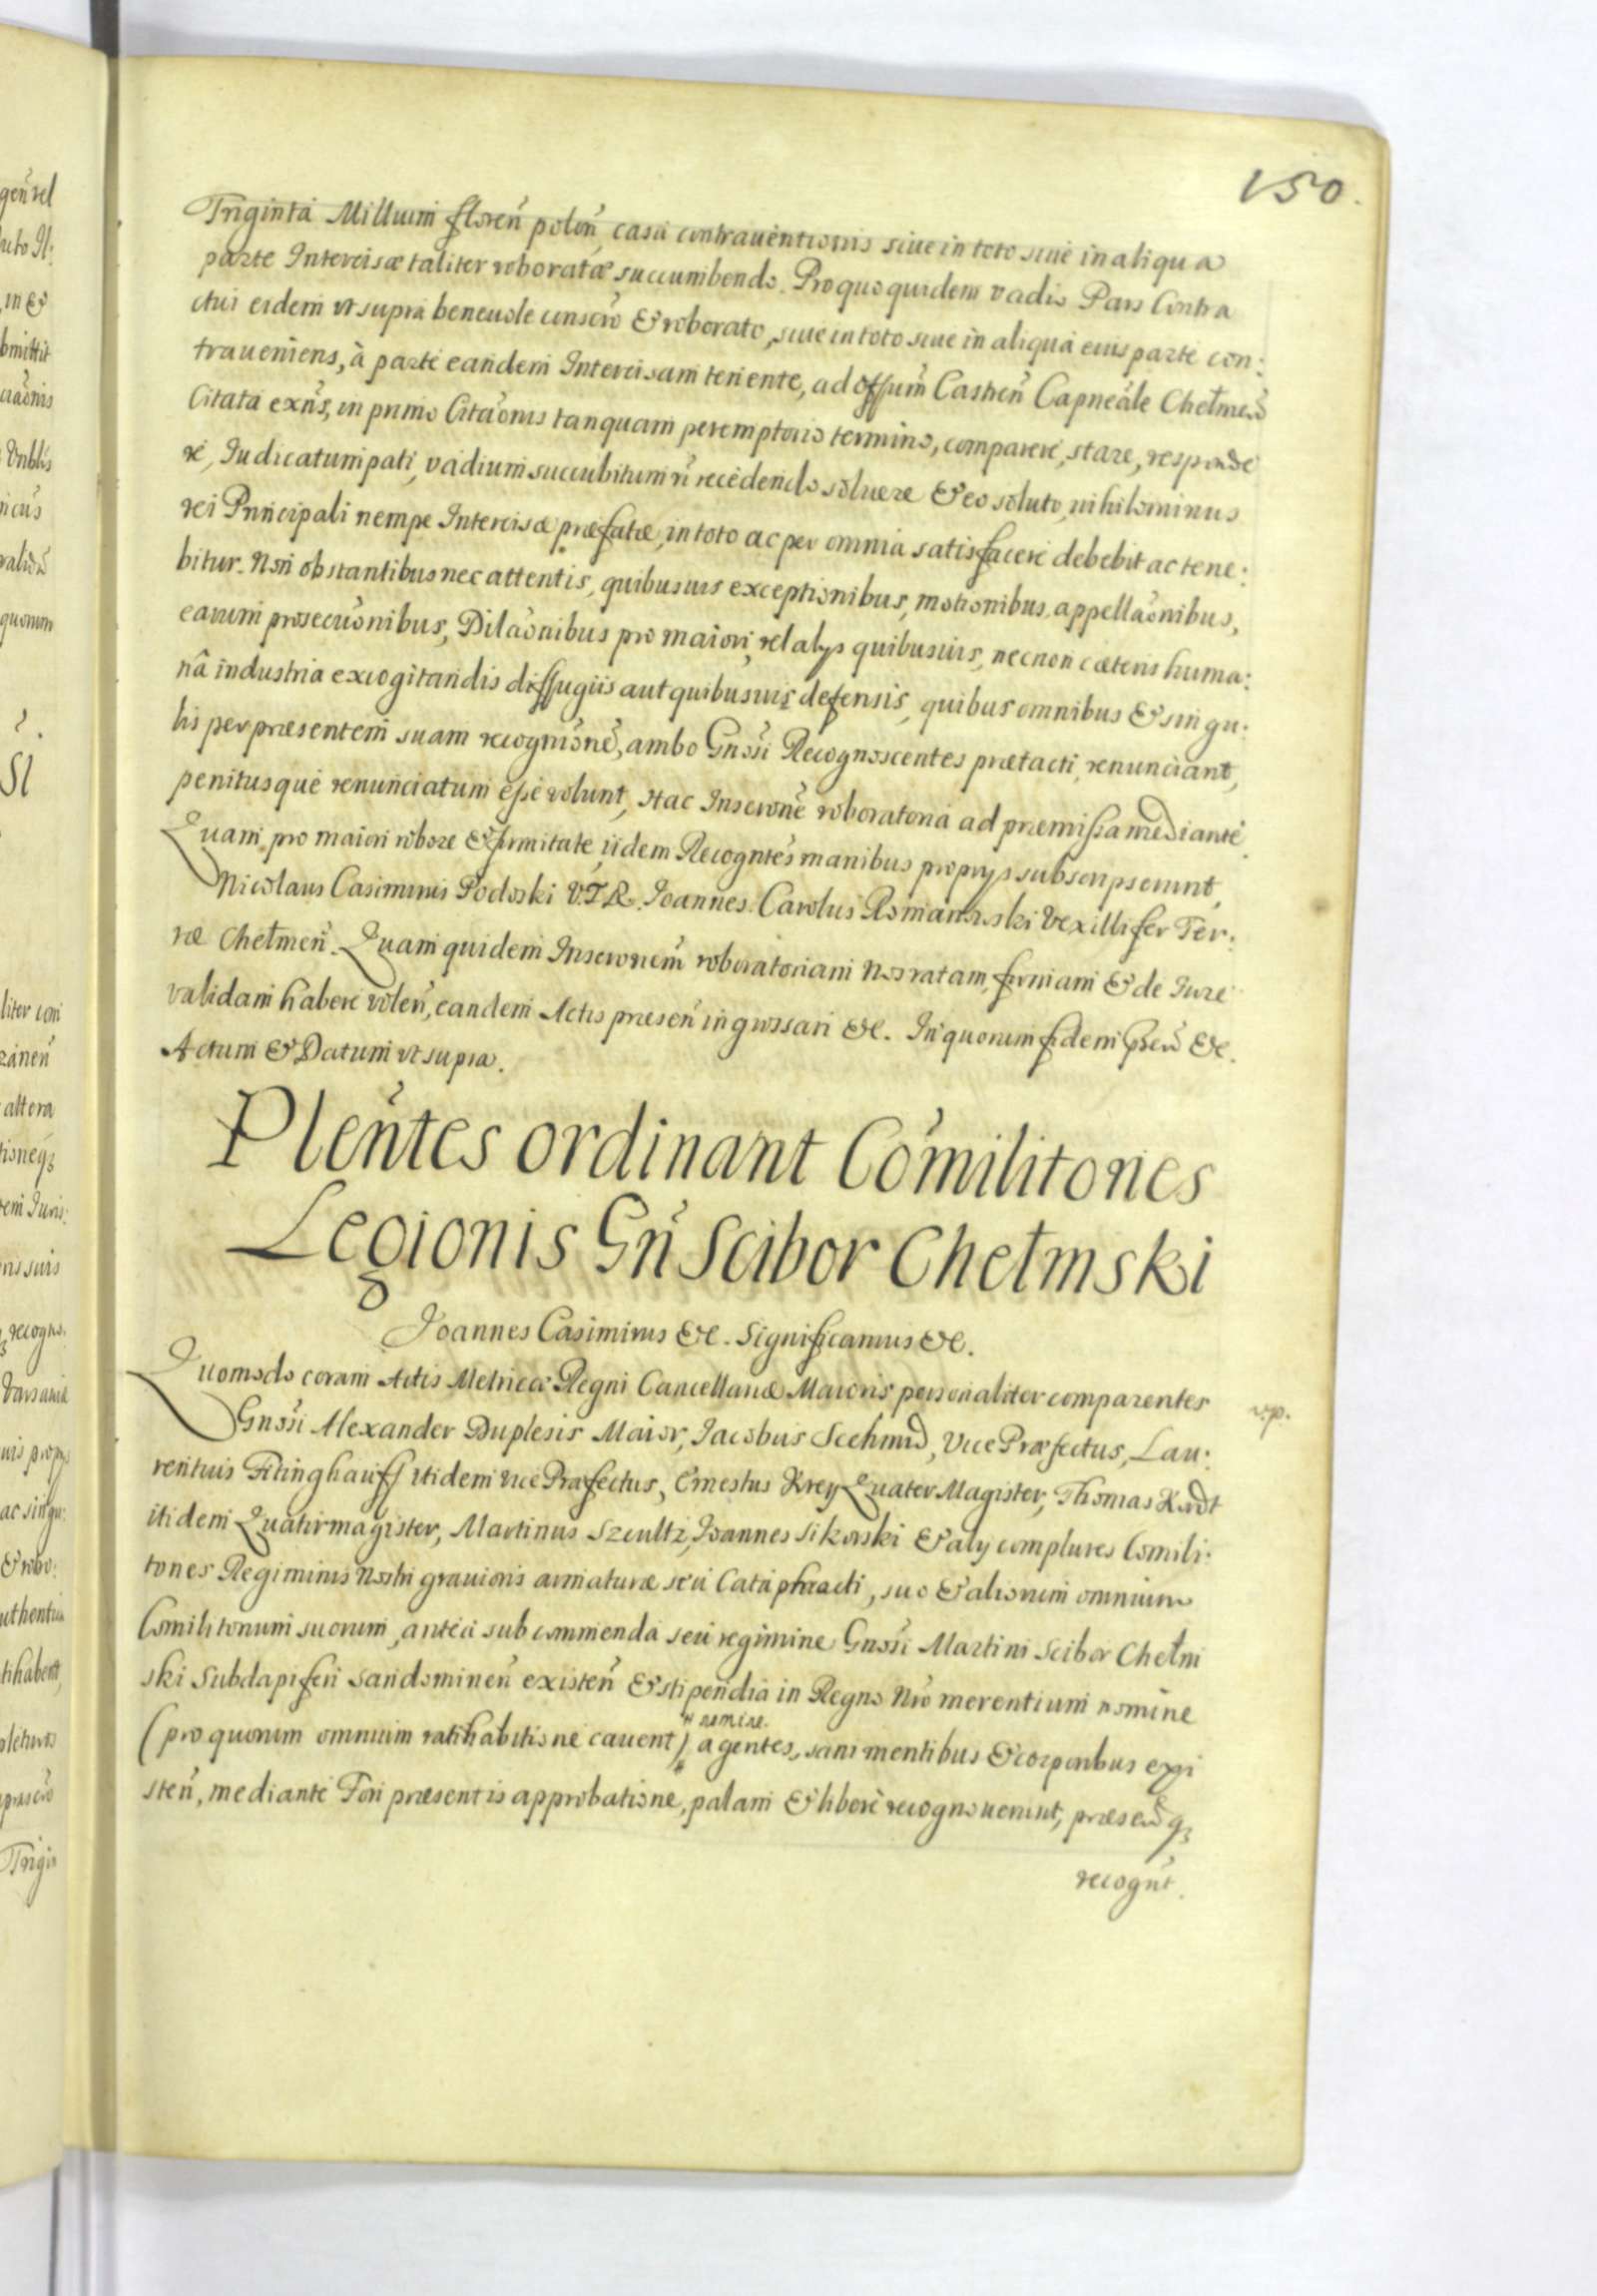 150.
Triginta Millium floren̄ polon̄, casu contrauentionis siue in toto siue in aliqua
parte Intercisæ taliter roboratæ succumbendo. Pro quo quidem vadio Pars Contra
ctui eidem vt supra beneuole inscr̄o & roborato, siue in toto siue in aliqua eius parte con:
traueniens, à parte eandem Intercisam tenente, ad Offum̄ Castren̄ Capneāle Chełmen̄
Citata exn̄s, in primo Cita͠onis tanquam peremptorio termino, comparere, stare, responde
re, Iudicatum pati, vadium succubitum n̄ recedendo soluere & eo soluto, nihilominus
rei Principali nempe Intercisæ præfatæ, in toto ac per omnia satisfacere debebit ac tene:
bitur. Non obstantibus nec attentis, quibusuis exceptionibus, motionibus, appella͠onibus,
earum prosecu͠onibus, Dila͠onibus pro maiori, vel alijs quibusuis, necnon cæteris huma:
nâ industria excogitandis diffugiis aut quibusuis defensis, quibus omnibus & singu:
lis per præsentem suam recogni͠onē, ambo Gnosi Recognoscentes prætacti, renunciant,
penitusque renunciatum esse volunt, Hac Inscr͠one roboratoria ad præmissa mediante.
Quam pro maiori robore & firmitate, iidem Recogntēs manibus proprijs subscripserunt,
Nicolaus Casimirus Podoski V.T.R. Ioannes Carolus Romanowski Vexillifer Ter:
ræ Chełmen̄. Quam quidem Inscr͠onem roboratoriam Nos ratam, firmam & de Iure
validam habere volen̄, eandem Actis præsen̄ ingrossari &c. In quorum fidem p̄sen̄ &c.
Actum & Datum vt supra.
Plen̄tes ordinant Com̄ilitones
Legionis Gn̄ Scibor Chełmski
Joannes Casimirus &c. Significamus &c.
Quomodo coram Actis Metrices Regni Cancellariæ Maioris personaliter comparentes
Gnosi Alexander Duplesis Maior, Iacobus Scehmid, Vice Præfectus, Lau:
rentius Fitinghauff itidem vice Præfectus, Ernestus Krey Quater Magister, Thomas
itidem Quatirmagister, Martinus Szcultz, Ioannes Sikorski & alij complures Comili:
tones Regiminis Nostri grauioris armaturæ seu Cataphracti, suo & aliorum omnium
Comilitonum suorum, antea sub commenda seu regimine Gnosi Martini Scibor Chełm
ski Subdapiferi Sandomirien̄ existen̄ & stipendia in Regno Nr̄o merentium nomine
(pro quorum omnium ratihabitione cauent) nomine agentes, sani mentibus & corporibus exi
sten̄, mediante Fori præsentis approbatione, palam & liberè recognouerunt, præsen̄ q;
recognt̄.